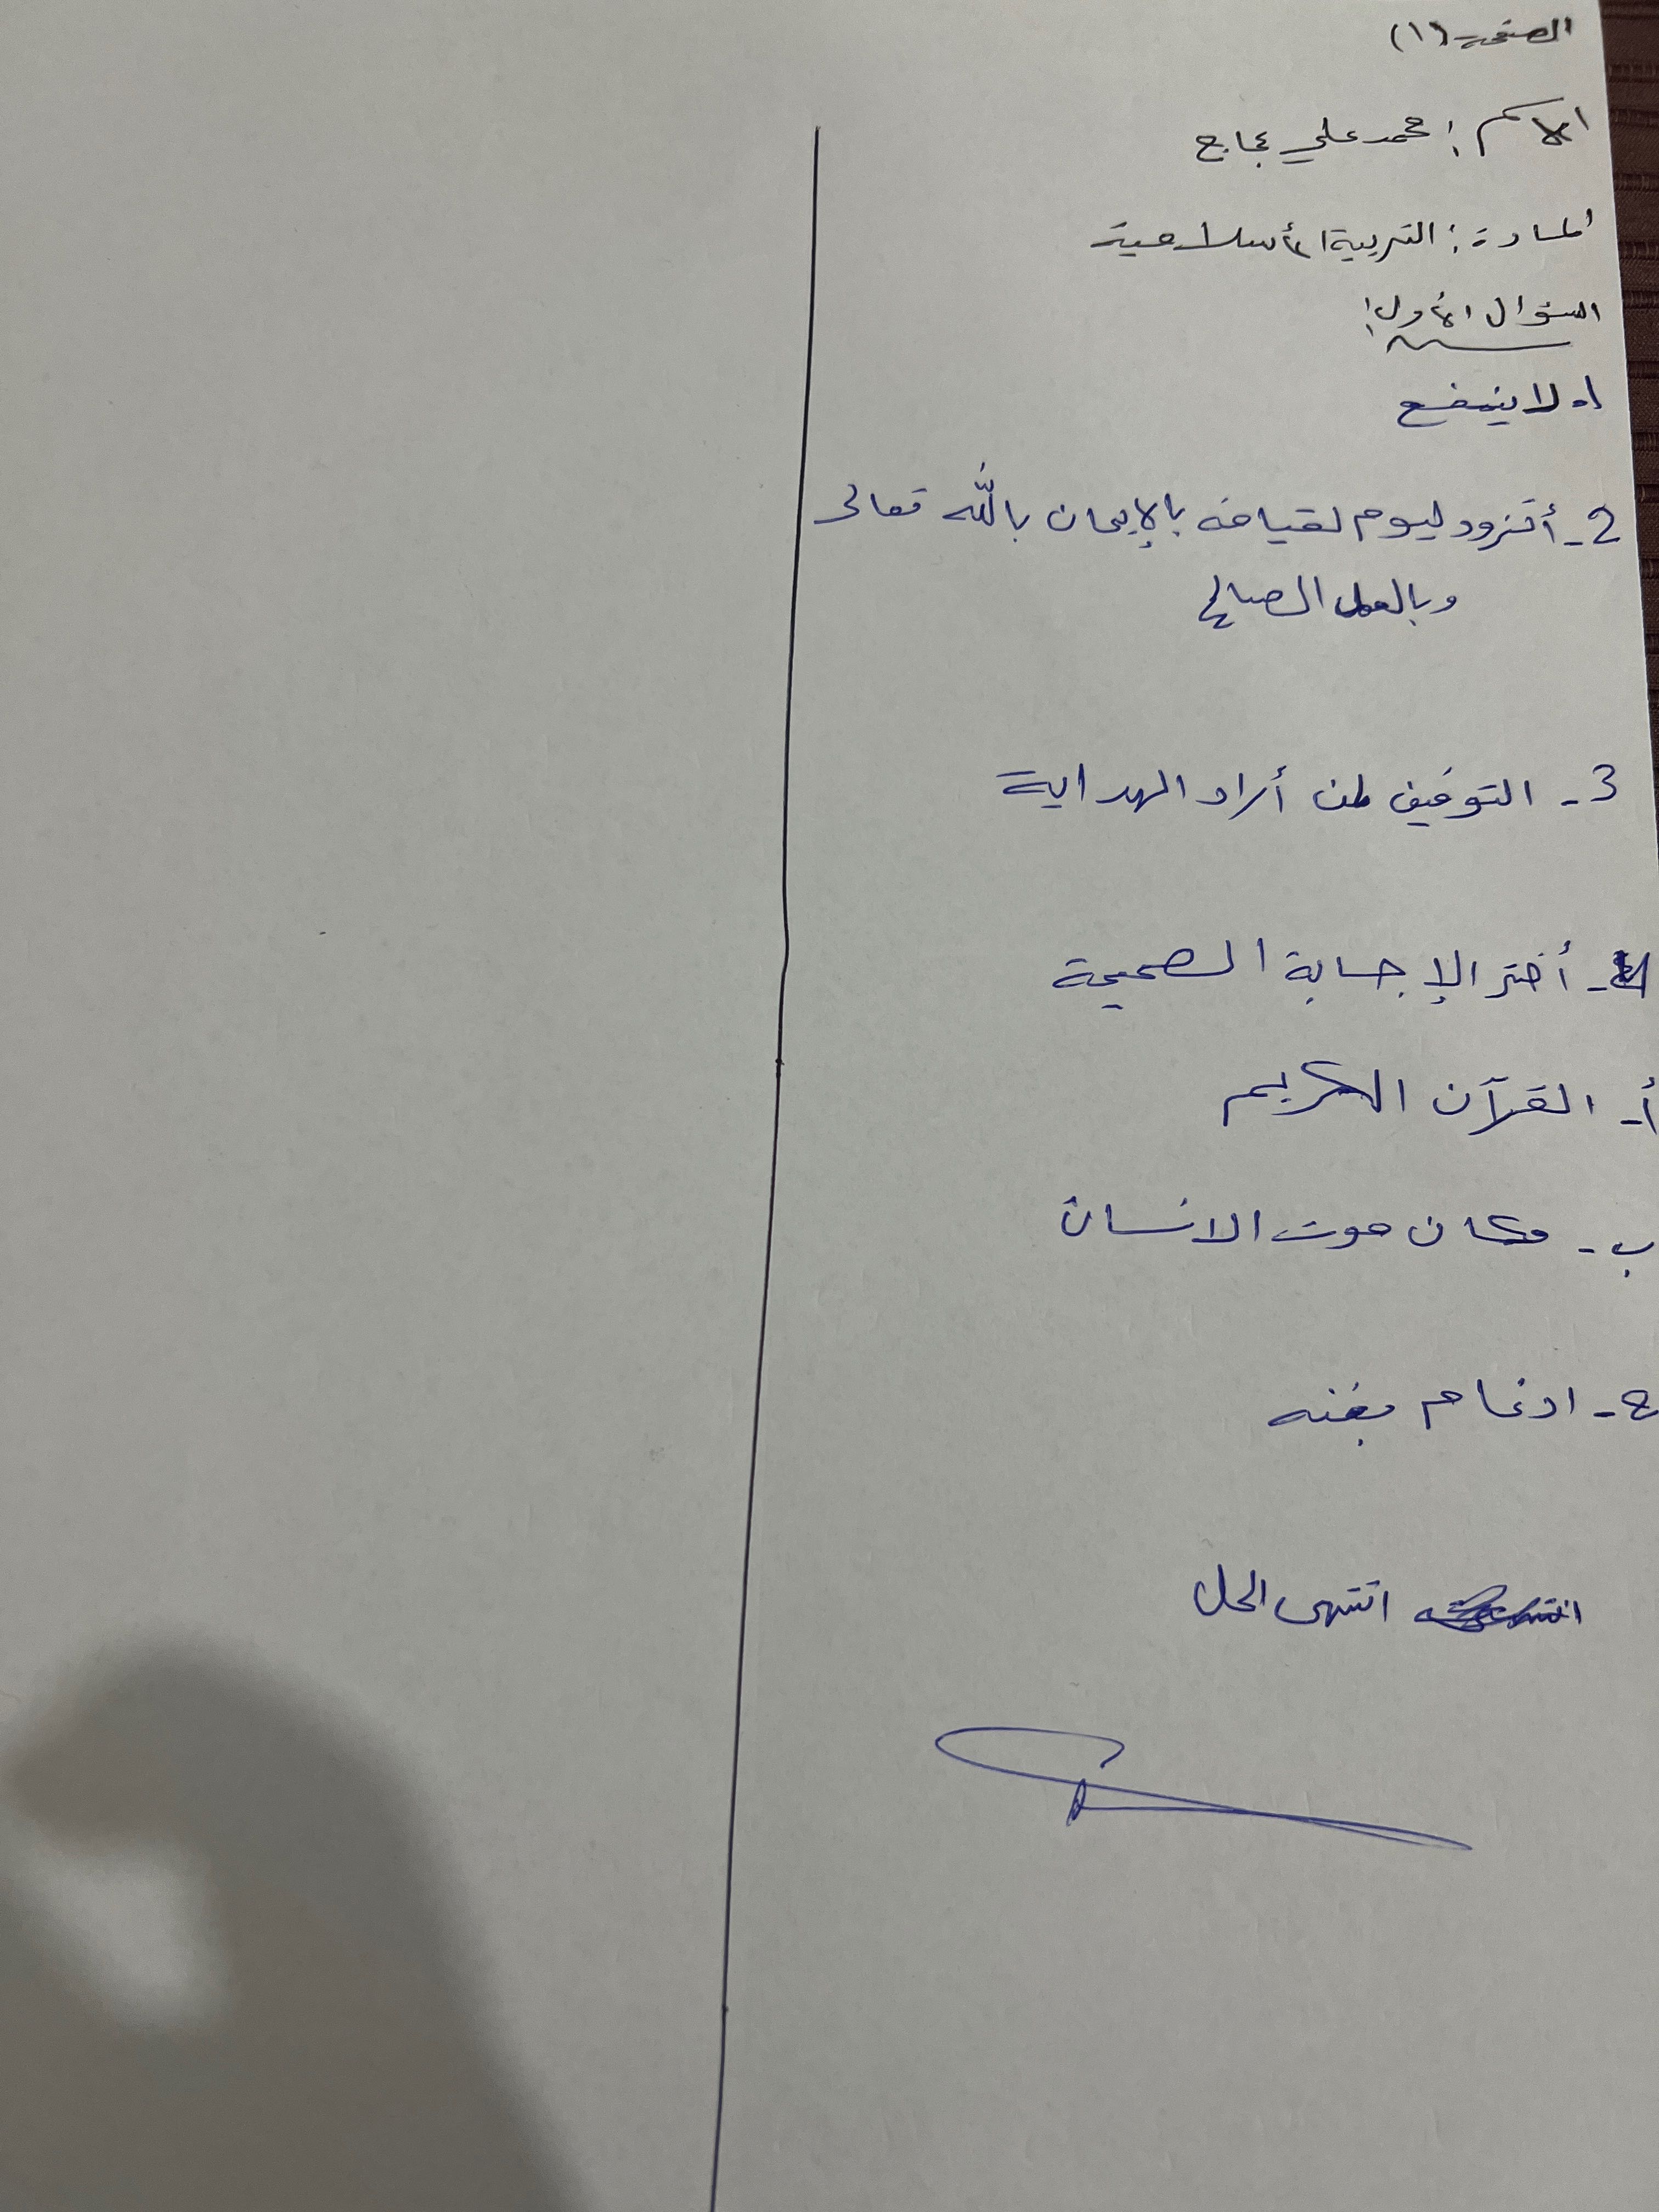 الصفحة (١)
الاسم : محمد علي عجاج
المادة : التربية الأسلامية
السؤال الأول :
1- لا ينفع
2- أتزود ليوم لقيامه بالإيمان بالله تعالى
وبالعمل الصالح
3- التوفيق لمن أراد الهداية
4- أختر الإجابة الصحيحة
أ- القرآن الكريم
ب- مكان موت الانسان
ج- ادغام بغنه
انتهى الحل